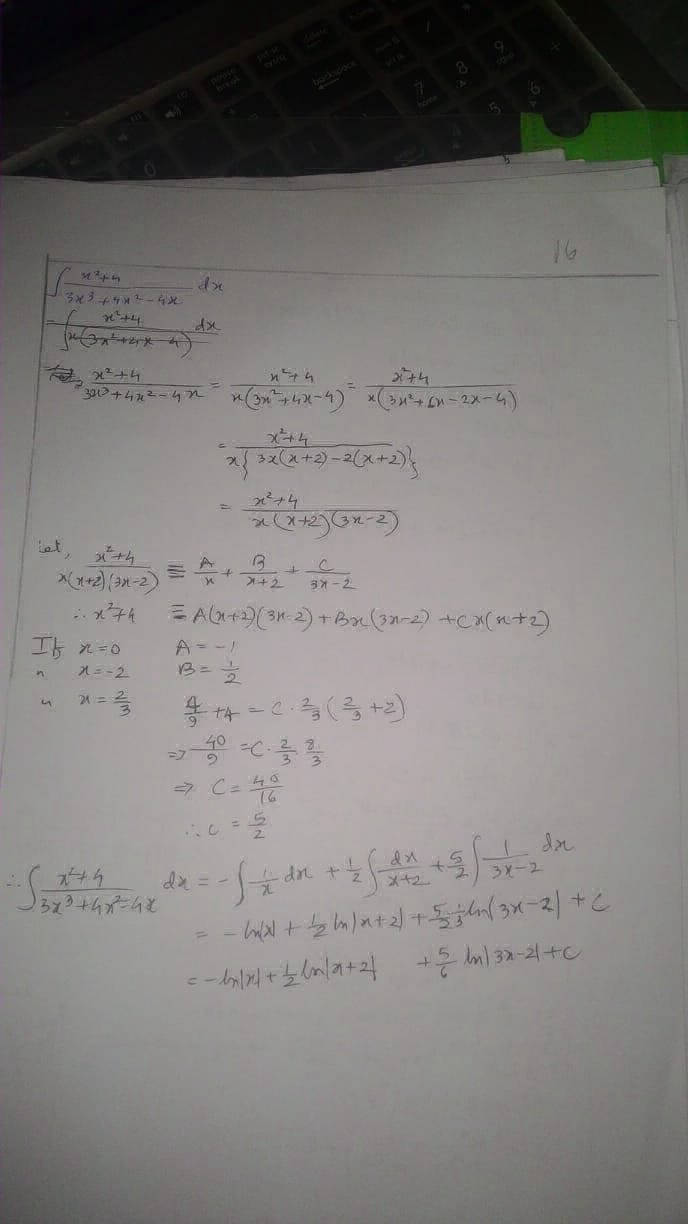 16
∫ x²+4 / 3x³+4x²-4x dx
= ∫ x²+4 / x(3x²+4x-4) dx
x²+4 / 3x³+4x²-4x = x²+4 / x(3x²+4x-4) = x²+4 / x(3x²+6x-2x-4)
= x²+4 / x{3x(x+2)-2(x+2)}
= x²+4 / x(x+2)(3x-2)
Let, x²+4 / x(x+2)(3x-2) ≡ A/x + B/x+2 + C/3x-2
∴ x²+4 ≡ A(x+2)(3x-2) + Bx(3x-2) + Cx(x+2)
If x=0 A=-1
" x=-2 B=1/2
" x=2/3 4/9 + 4 = C·2/3 (2/3+2)
⇒ 40/9 = C·2/3 8/3
⇒ C = 40/16
∴ C = 5/2
∴ ∫ x²+4 / 3x³+4x²-4x dx = -∫ 1/x dx + 1/2 ∫ dx/x+2 + 5/2 ∫ 1/3x-2 dx
= -ln|x| + 1/2 ln|x+2| + 5/2 1/3 ln|3x-2| + C
= -ln|x| + 1/2 ln|x+2| + 5/6 ln|3x-2| + C